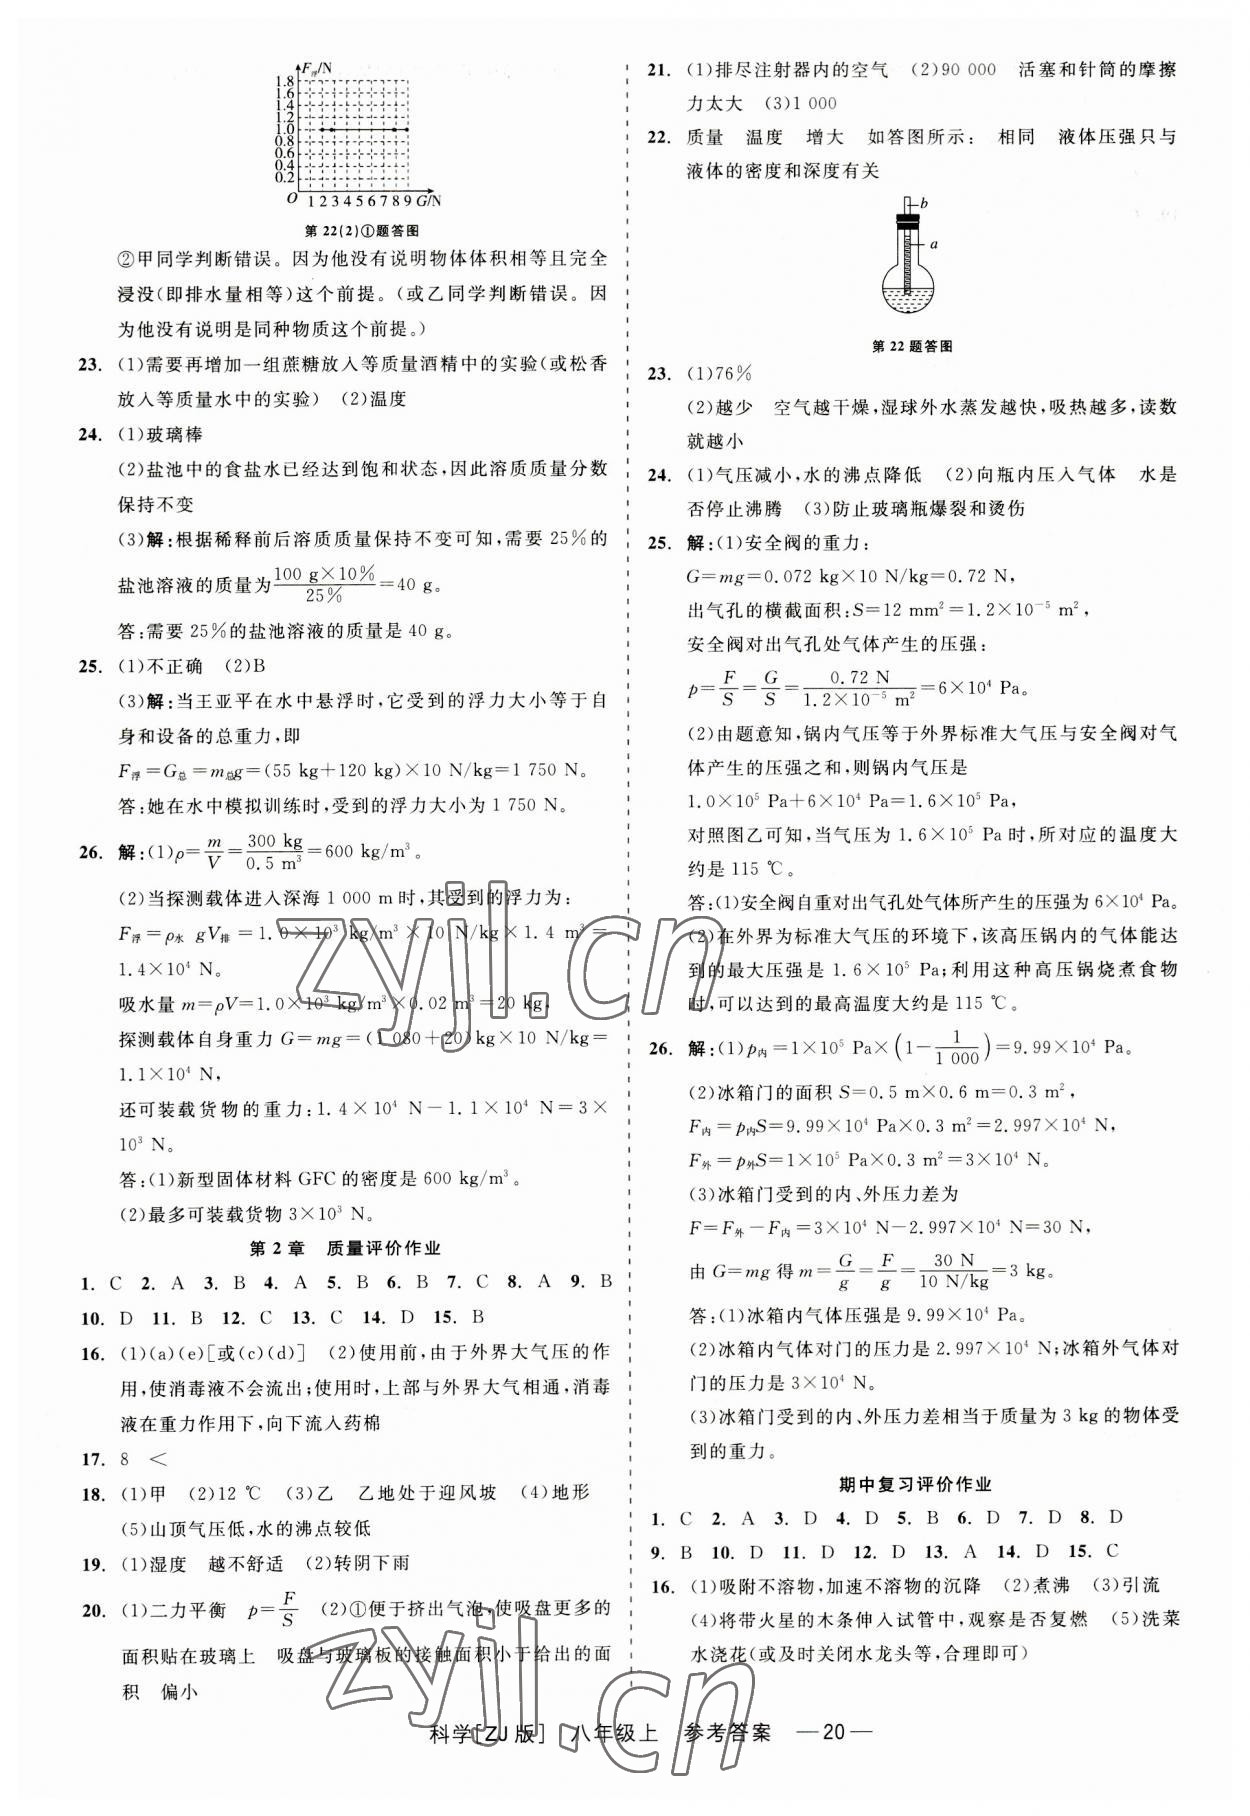 F浮/N
1.8
1.6
1.4
1.2
1.0
0.8
0.6
0.4
0.2
O 1 2 3 4 5 6 7 8 9 G/N
第 22(2)①题答图
②甲同学判断错误。因为他没有说明物体体积相等且完全
浸没(即排水量相等)这个前提。(或乙同学判断错误。因
为他没有说明是同种物质这个前提。)
23. (1)需要再增加一组蔗糖放入等质量酒精中的实验(或松香
放入等质量水中的实验) (2)温度
24. (1)玻璃棒
(2)盐池中的食盐水已经达到饱和状态,因此溶质质量分数
保持不变
(3)解:根据稀释前后溶质质量保持不变可知,需要 25%的
盐池溶液的质量为 100 g×10%/25% =40 g。
答:需要 25%的盐池溶液的质量是 40 g。
25. (1)不正确 (2)B
(3)解:当王亚平在水中悬浮时,它受到的浮力大小等于自
身和设备的总重力,即
F浮=G总=m总g=(55 kg+120 kg)×10 N/kg=1 750 N。
答:她在水中模拟训练时,受到的浮力大小为 1 750 N。
26. 解:(1)ρ=m/V=300 kg/0.5 m³=600 kg/m³。
(2)当探测载体进入深海 1 000 m 时,其受到的浮力为:
F浮=ρ水 gV排=1.0×10³ kg/m³×10 N/kg×1.4 m³=
1.4×10⁴ N。
吸水量 m=ρV=1.0×10³ kg/m³×0.02 m³=20 kg,
探测载体自身重力 G=mg=(1 080+20)kg×10 N/kg=
1.1×10⁴ N,
还可装载货物的重力:1.4×10⁴ N-1.1×10⁴ N=3×
10³ N。
答:(1)新型固体材料 GFC 的密度是 600 kg/m³。
(2)最多可装载货物 3×10³ N。
第 2 章 质量评价作业
1. C 2. A 3. B 4. A 5. B 6. B 7. C 8. A 9. B
10. D 11. B 12. C 13. C 14. D 15. B
16. (1)(a)(e)[或(c)(d)] (2)使用前,由于外界大气压的作
用,使消毒液不会流出;使用时,上部与外界大气相通,消毒
液在重力作用下,向下流入药棉
17. 8 <
18. (1)甲 (2)12 ℃ (3)乙 乙地处于迎风坡 (4)地形
(5)山顶气压低,水的沸点较低
19. (1)湿度 越不舒适 (2)转阴下雨
20. (1)二力平衡 p=F/S (2)①便于挤出气泡,使吸盘更多的
面积贴在玻璃上 吸盘与玻璃板的接触面积小于给出的面
积 偏小
21. (1)排尽注射器内的空气 (2)90 000 活塞和针筒的摩擦
力太大 (3)1 000
22. 质量 温度 增大 如答图所示: 相同 液体压强只与
液体的密度和深度有关
b
a
第 22 题答图
23. (1)76%
(2)越少 空气越干燥,湿球外水蒸发越快,吸热越多,读数
就越小
24. (1)气压减小,水的沸点降低 (2)向瓶内压入气体 水是
否停止沸腾 (3)防止玻璃瓶爆裂和烫伤
25. 解:(1)安全阀的重力:
G=mg=0.072 kg×10 N/kg=0.72 N,
出气孔的横截面积:S=12 mm²=1.2×10⁻⁵ m²,
安全阀对出气孔处气体产生的压强:
p=F/S=G/S=0.72 N/1.2×10⁻⁵ m²=6×10⁴ Pa。
(2)由题意知,锅内气压等于外界标准大气压与安全阀对气
体产生的压强之和,则锅内气压是
1.0×10⁵ Pa+6×10⁴ Pa=1.6×10⁵ Pa,
对照图乙可知,当气压为 1.6×10⁵ Pa 时,所对应的温度大
约是 115 ℃。
答:(1)安全阀自重对出气孔处气体所产生的压强为 6×10⁴ Pa。
(2)在外界为标准大气压的环境下,该高压锅内的气体能达
到的最大压强是 1.6×10⁵ Pa;利用这种高压锅烧煮食物
时,可以达到的最高温度大约是 115 ℃。
26. 解:(1)p内=1×10⁵ Pa×(1-1/1 000)=9.99×10⁴ Pa。
(2)冰箱门的面积 S=0.5 m×0.6 m=0.3 m²,
F内=p内S=9.99×10⁴ Pa×0.3 m²=2.997×10⁴ N,
F外=p外S=1×10⁵ Pa×0.3 m²=3×10⁴ N。
(3)冰箱门受到的内、外压力差为
F=F外-F内=3×10⁴ N-2.997×10⁴ N=30 N,
由 G=mg 得 m=G/g=F/g=30 N/10 N/kg=3 kg。
答:(1)冰箱内气体压强是 9.99×10⁴ Pa。
(2)冰箱内气体对门的压力是 2.997×10⁴ N;冰箱外气体对
门的压力是 3×10⁴ N。
(3)冰箱门受到的内、外压力差相当于质量为 3 kg 的物体受
到的重力。
期中复习评价作业
1. C 2. A 3. D 4. D 5. B 6. D 7. D 8. D
9. B 10. D 11. D 12. D 13. A 14. D 15. C
16. (1)吸附不溶物,加速不溶物的沉降 (2)煮沸 (3)引流
(4)将带火星的木条伸入试管中,观察是否复燃 (5)洗菜
水浇花(或及时关闭水龙头等,合理即可)
科学[ZJ 版] 八年级上 参考答案 —20—
zyjl.cn
zyjl.cn